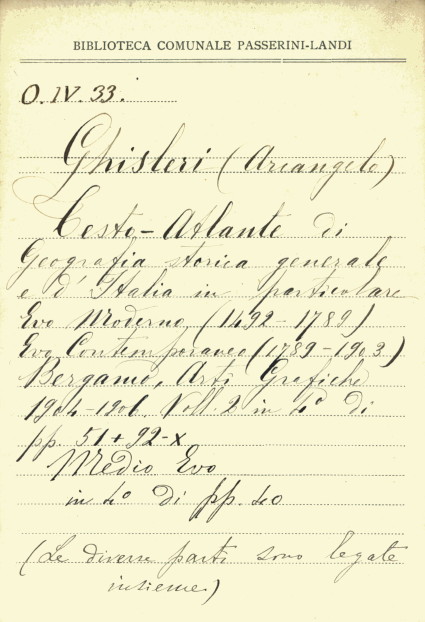 BIBLIOTECA COMUNALE PASSERINI-LANDI
O. IV. 33.
Ghisleri (Arcangelo)
Testo-Atlante di
Geografia storica generale
e d'Italia in particolare
Evo Moderno (1492-1789)
Evo Contemporaneo (1789-1903)
Bergamo, Arti Grafiche
1904-1906. Voll. 2 in 4° di
pp. 51+92-X
Medio Evo
in 4° di pp. 40
(Le diverse parti sono legate
insieme.)